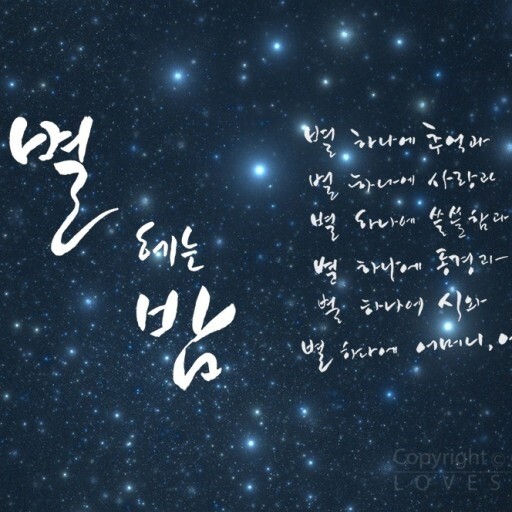 별
헤는
밤
별 하나에 추억과
별 하나에 사랑과
별 하나에 쓸쓸함과
별 하나에 동경과
별 하나에 시와
별 하나에 어머니, 어
Copyright ©
LOVES